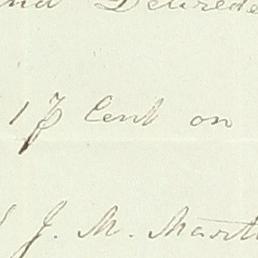 and Delivered
1 ⅌ Cent on
J. M. Mart